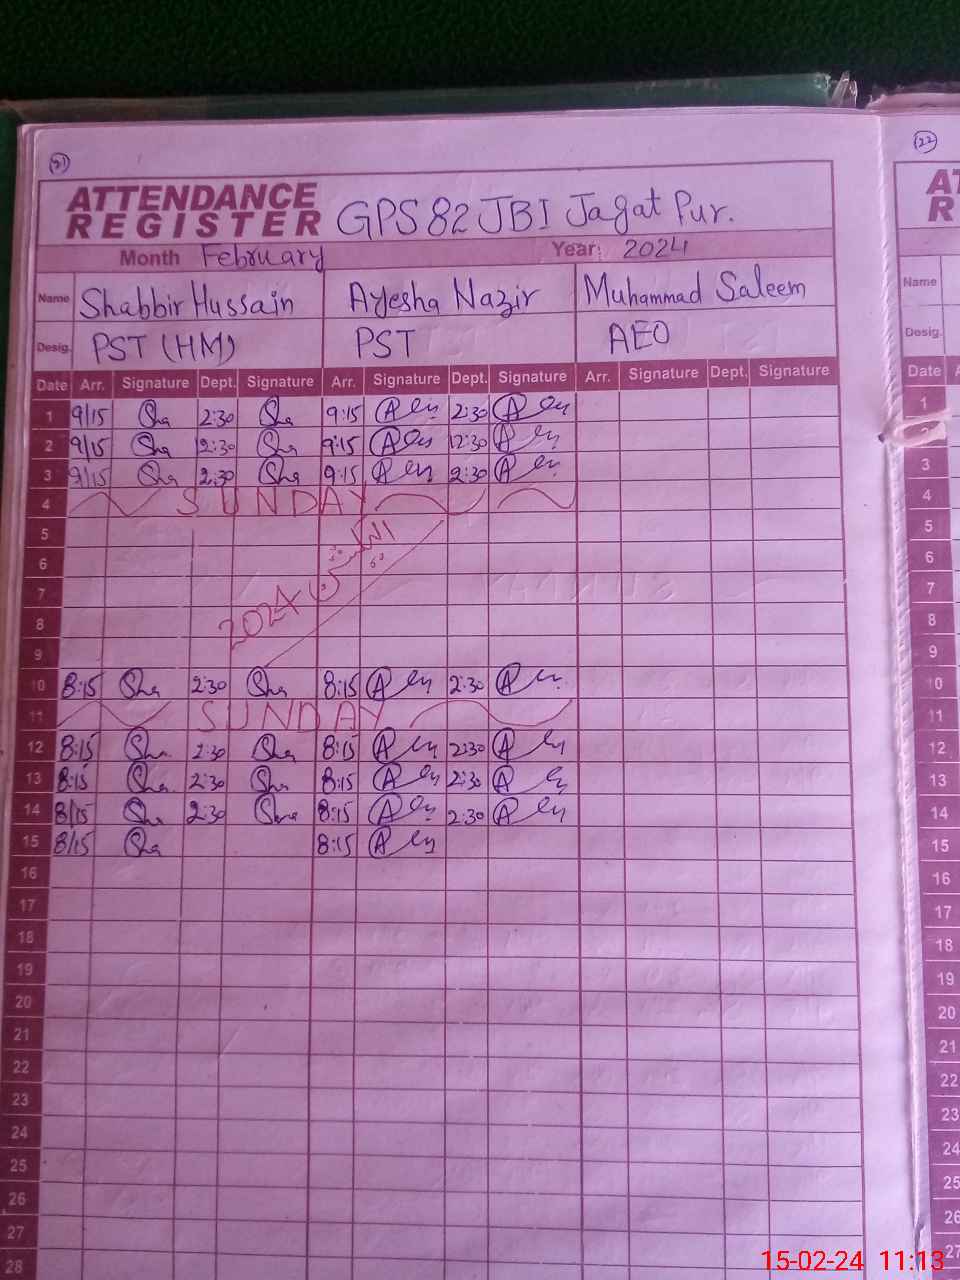 21
22
ATTENDANCE REGISTER GPS 82 JBI Jagat Pur.
Month February Year: 2024
Name Shabbir Hussain Ayesha Nazir Muhammad Saleem
Name
Desig. PST (HM) PST AEO
Desig.
Date Arr. Signature Dept. Signature Arr. Signature Dept. Signature Arr. Signature Dept. Signature
Date
1 9/15 Sha 2:30 Sha 9:15 2:30
1
2 9/15 Sha 2:30 Sha 9:15 2:30
3 9/15 Sha 2:30 Sha 9:15 2:30
3
4 SUNDAY
4
5
5
6
6
7 2024
7
8
8
9
9
10 8:15 Sha 2:30 Sha 8:15 2:30
10
11 SUNDAY
11
12 8:15 Sha 2:30 Sha 8:15 2:30
12
13 8:15 Sha 2:30 Sha 8:15 2:30
13
14 8/15 Sha 2:30 Sha 8:15 2:30
14
15 8/15 Sha 8:15
15
16
16
17
17
18
18
19
19
20
20
21
21
22
22
23
23
24
24
25
25
26
26
27
27
28
15-02-24 11:13